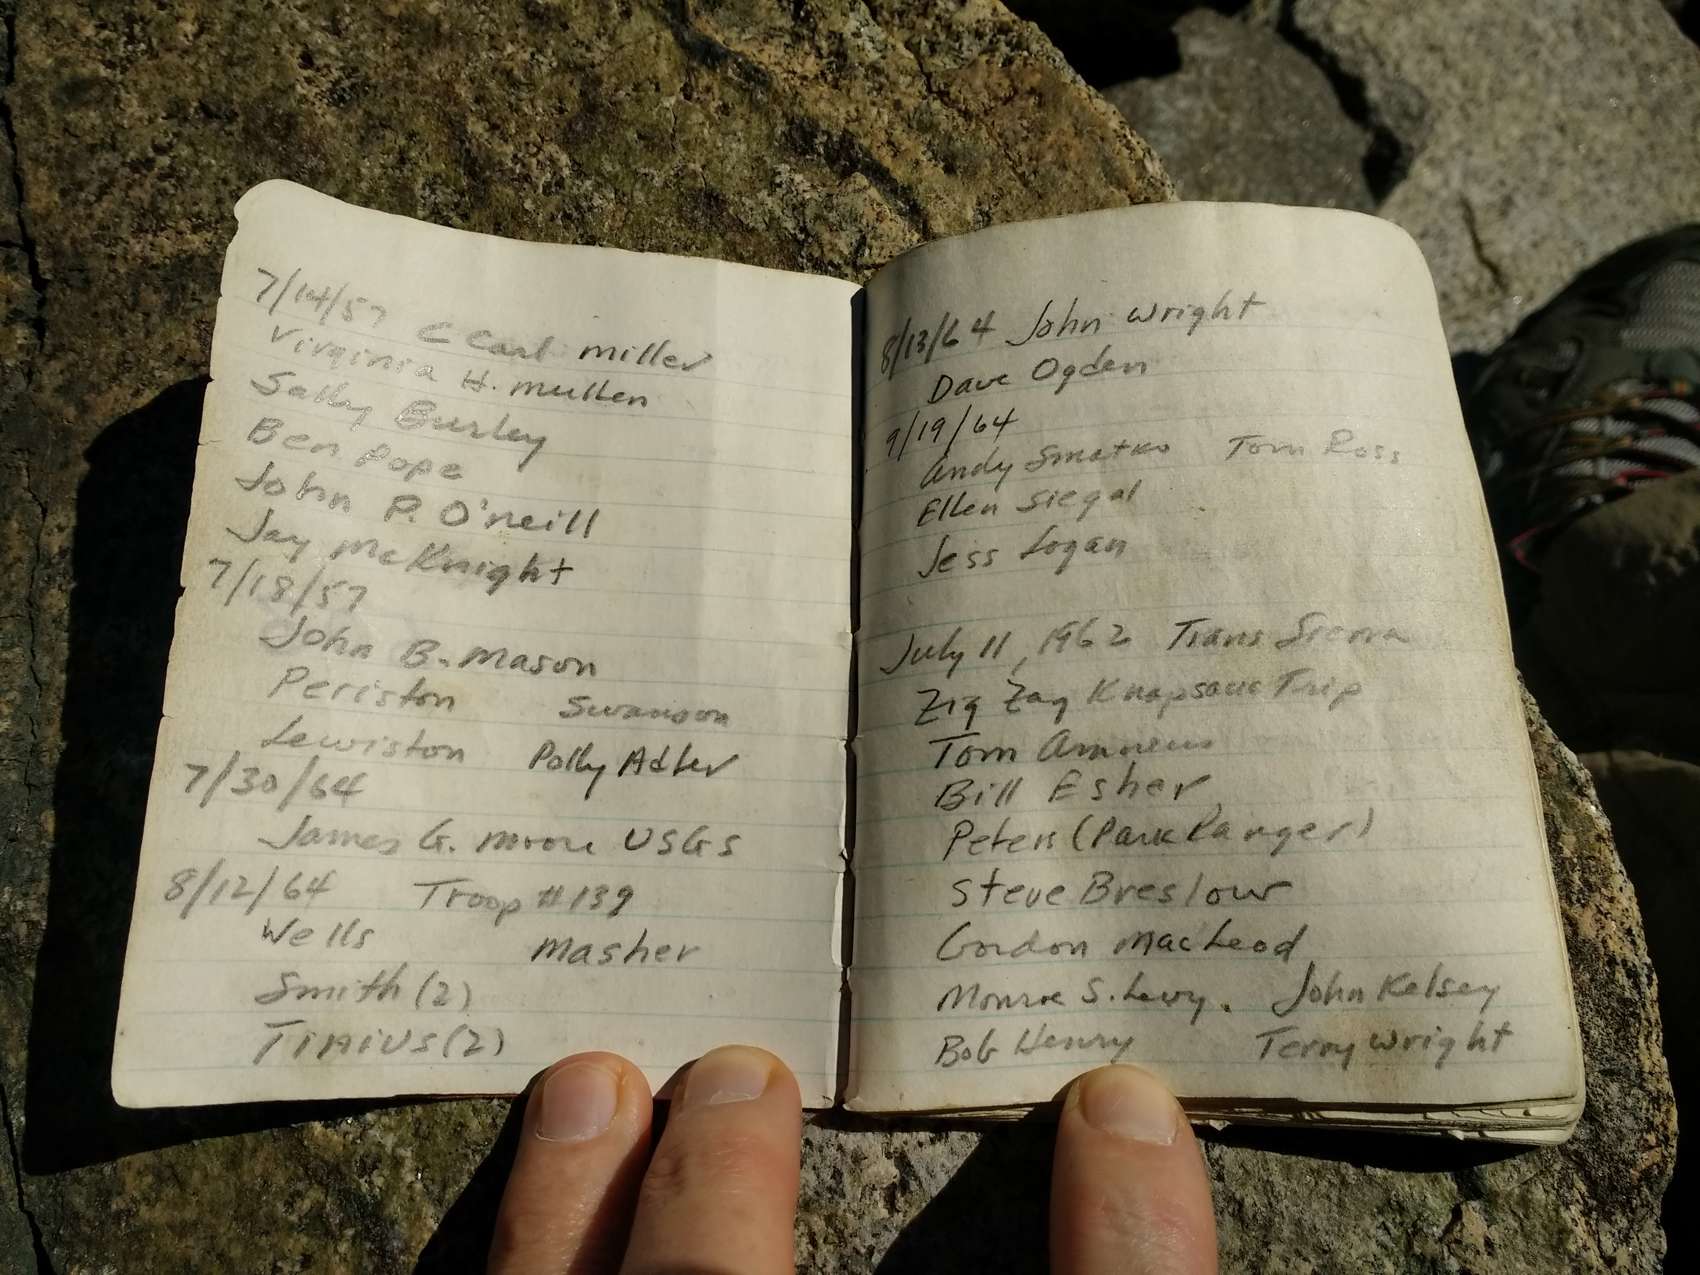 7/14/57 C Carl Miller
Virginia H. Mullen
Sally Burley
Ben Pope
John P. O'Neill
Jay McKnight
7/18/57
John B. Mason
Periston Swanson
Lewiston Polly Adler
7/30/64
James G. Moore USGS
8/12/64 Troop #139
Wells Masher
Smith (2)
(2)
8/13/64 John Wright
Dave Ogden
9/19/64
Andy Smatko Tom Ross
Ellen Siegal
Jess Logan
July 11, 1962 Trans Sierra
Zig Zag Knapsack Trip
Tom Amneus
Bill Esher
Peter (Park Ranger)
Steve Breslow
Gordon MacLeod
Monroe S. Levy. John Kelsey
Bob Henry Terry Wright